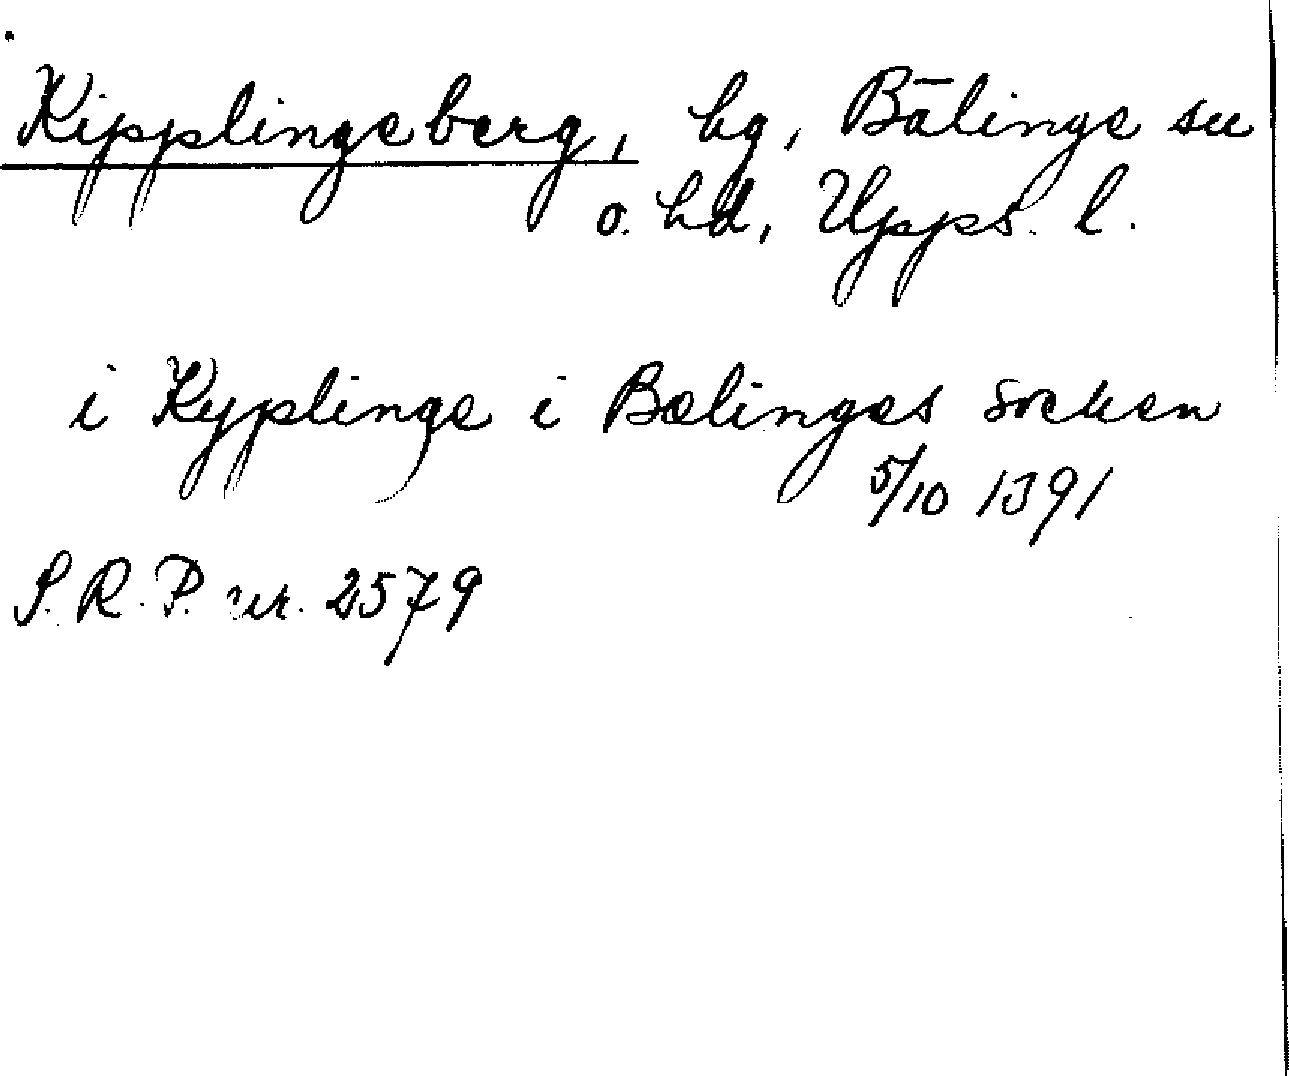 Kipplingeberg, hg, Bälinge sn
o. hd, Upps. l.
i Kyplinge i Bælinges socken
5/10 1391
S.R.P. nr. 2579